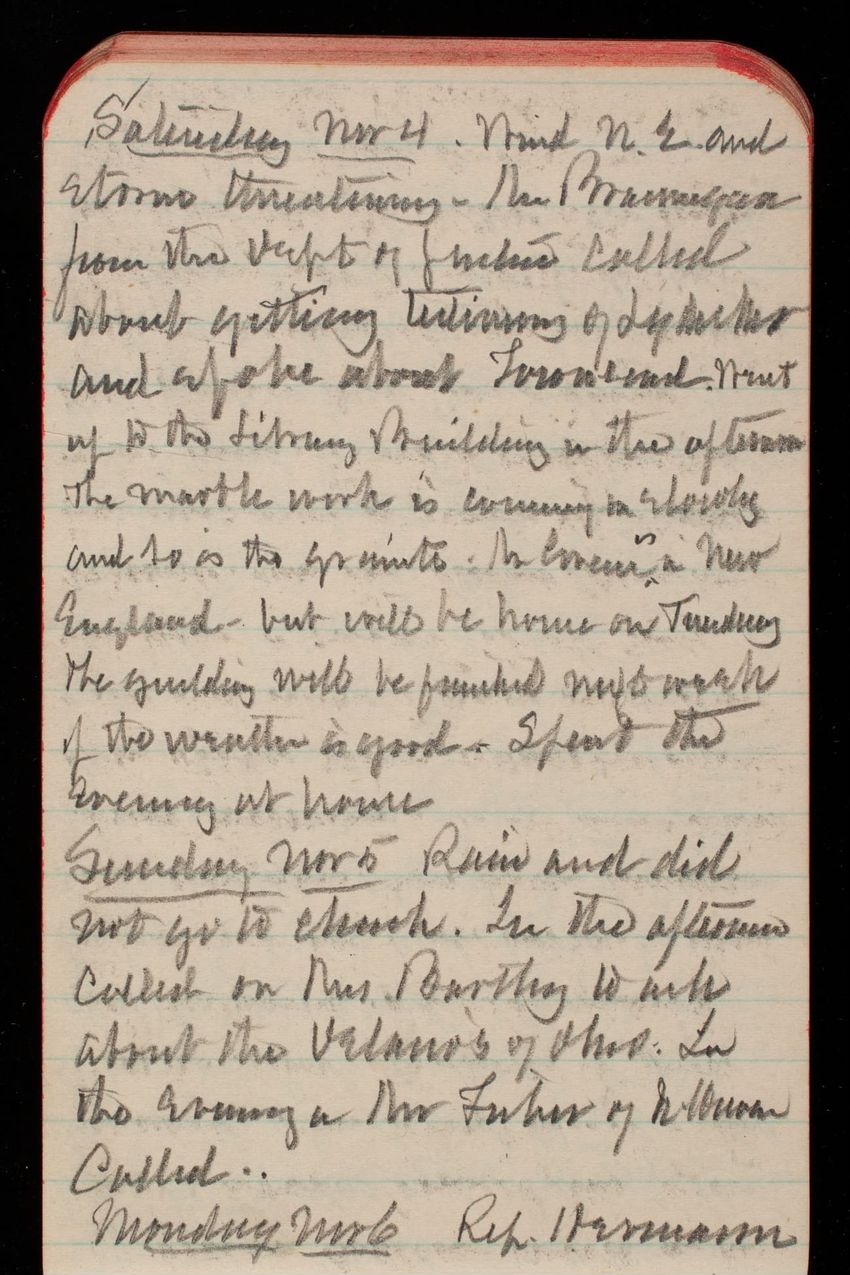 Saturday Nov 4. Wind N.E. and
storm threatening - Mr Brannegan
from the Dept of Justice called
about getting testimony of
and spoke about Townsend. Went
up to the Library Building in the afternoon
The marble work is coming in slowly
and so is the granite. Mr Green is in New
England - but will be home on Tuesday
The gilding will be finished next week
if the weather is good - Spend the
Evening at home
Sunday Nov 5 Rain and did
not go to church. In the afternoon
Called on Mrs. Bartley to ask
about the of Ohio. In
the Evening a Mr of
Called..
Monday Nov 6 Rep. Hermann